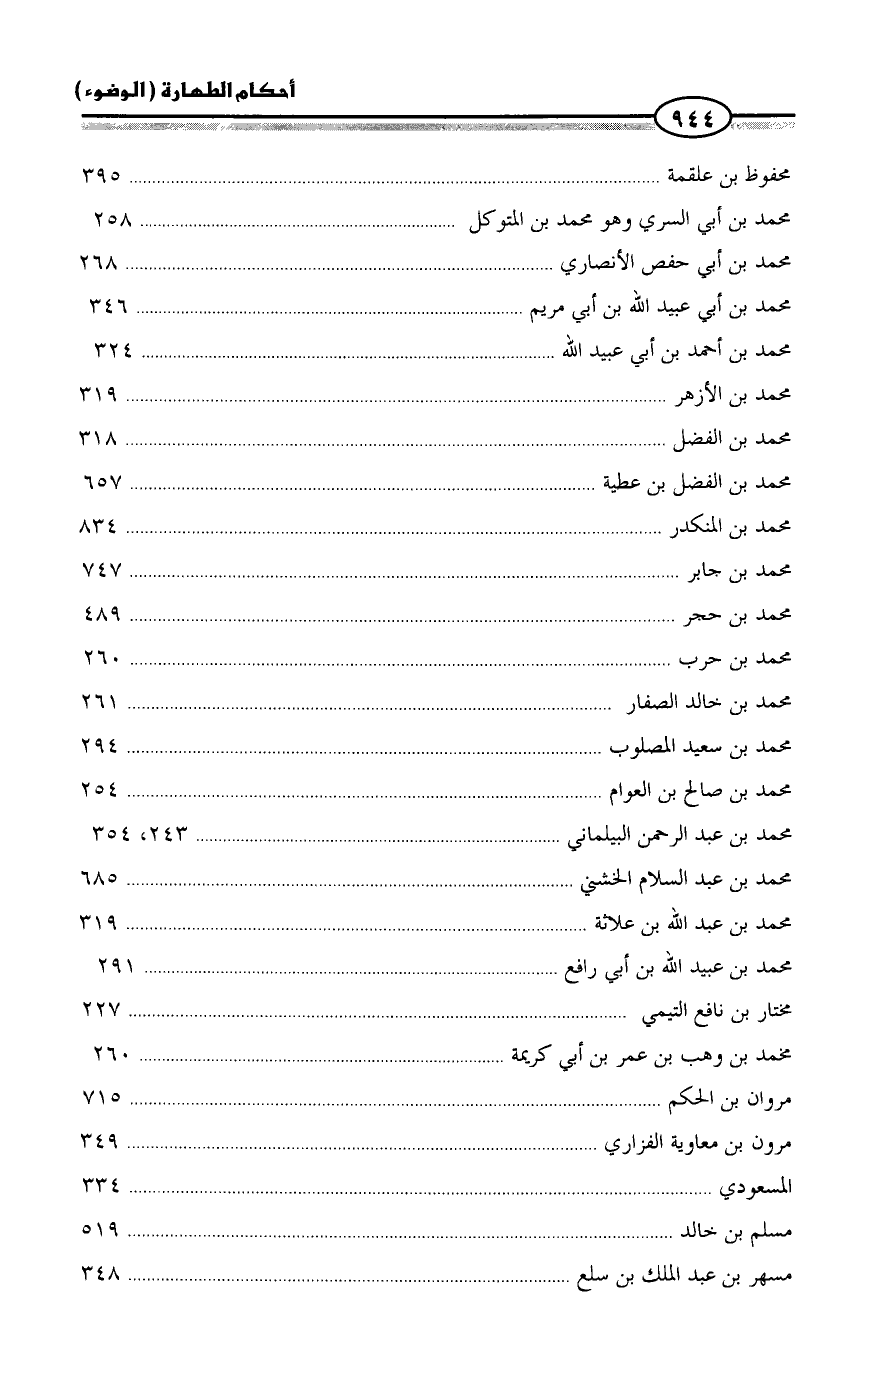 أحكام الطهارة (الوضوء)
٩٤٤
محفوظ بن علقمة ٣٩٥
محمد بن أبي السري وهو محمد بن المتوكل ٢٥٨
محمد بن أبي حفص الأنصاري ٢٦٨
محمد بن أبي عبيد الله بن أبي مريم ٣٤٦
محمد بن أحمد بن أبي عبيد الله ٣٢٤
محمد بن الأزهر ٣١٩
محمد بن الفضل ٣١٨
محمد بن الفضل بن عطية ٦٥٧
محمد بن المنكدر ٨٣٤
محمد بن جابر ٧٤٧
محمد بن حجر ٤٨٩
محمد بن حرب ٢٦٠
محمد بن خالد الصفار ٢٦١
محمد بن سعيد المصلوب ٢٩٤
محمد بن صالح بن العوام ٢٥٤
محمد بن عبد الرحمن البيلماني ٢٤٣، ٣٥٤
محمد بن عبد السلام الخشني ٦٨٥
محمد بن عبد الله بن علاثة ٣١٩
محمد بن عبيد الله بن أبي رافع ٢٩١
مختار بن نافع التيمي ٢٢٧
مخمد بن وهب بن عمر بن أبي كريمة ٢٦٠
مروان بن الحكم ٧١٥
مرون بن معاوية الفزاري ٣٤٩
المسعودي ٣٣٤
مسلم بن خالد ٥١٩
مسهر بن عبد الملك بن سلع ٣٤٨